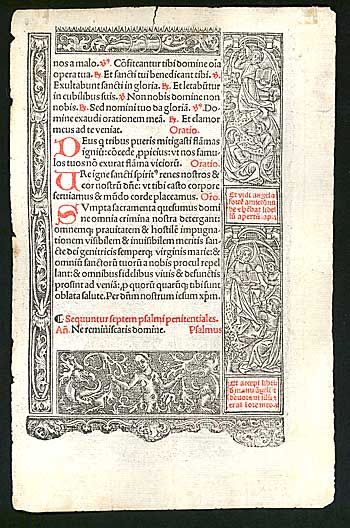 nos a malo. ℣. Cōfiteantur tibi domine oīa
opera tua. ℟. Et sancti tui benedicant tibi. ℣.
Exultabunt sancti in gloria. ℟. Et letabūtur
in cubilibus suis. ℣. Non nobis domine non
nobis. ℟. Sed nomini tuo da gloriā. ℣. Do-
mine exaudi orationem meā. ℟. Et clamor
meus ad te veniat. Oratio.
DEus q tribus pueris mitigasti flāmas
igniū: cōcede ,ppicius: vt nos famu-
los tuos nō exurat flāma viciorū. Oratio.
URe igne sancti spirit⁹ renes nostros &
cor nostrū dñe: vt tibi casto corpore
seruiamus & mūdo corde placeamus. Orō.
SUmpta sacramenta quesumus domi
ne omnia crimina nostra detergant:
omnemq; prauitatem & hostilē impugna-
tionem visibilem & inuisibilem meritis san-
cte dei genitricis semperq; virginis marie: &
omniū sanctorū tuorū a nobis procul repel
lant: & omnibus fidelibus viuis & defunctis
prosint ad veniā: ,p quorū quarūq; tibi sunt
oblata salute. Per dñm nostrum iesum xp̄m.
¶ Sequuntur septem psalmi penitentiales.
Añ. Ne reminiscaris domine. Psalmus
Et vidi angelū
fortē amictū nu
be & habebat libel
lū apertū apo.
Et accepi librū
d manu āgeli &
deuoraui illū &
erat in ore meo